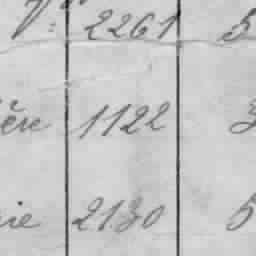 V:^e 2261 5
ère 1122 3
ie 2130 5